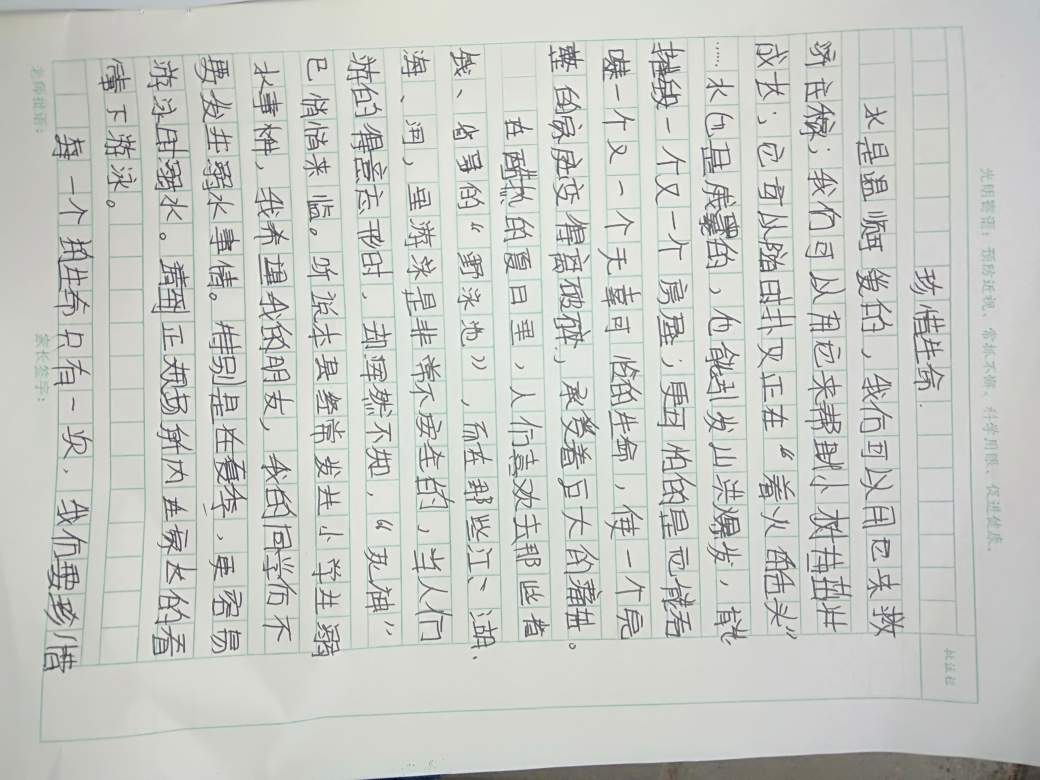 光明提语：预防近视、常抓不懈、科学用眼、促进健康。
珍惜生命.
水是温顺可爱的，我们可以用它来救
呼庄稼；我们可以用它来帮助小树苗茁壮
成长；它可以随时扑灭正在“着火的舌头”
……水也是威武的，他能引发山洪爆发，能
摧毁一个又一个房屋；更可怕的是它能吞
噬一个又一个天真可怜的生命，使一个完
整的家庭变得离破碎，承受着巨大的痛苦。
在酷热的夏日里，人们喜欢去那些省
钱、省事的“野泳池”，而在那些江、湖、
海、河，里游泳是非常不安全的，当人们
游的得意忘形时，却浑然不知，“死神”
已悄悄来临。听说本县经常发生小学生溺
水事件，我希望我的朋友，我的同学们不
要发生溺水事情。特别是在夏季，更容易
游泳时溺水。需到正规场所内在家长的看
管下游泳。
每一个的生命只有一次，我们要珍惜
老师批语：
家长签字：